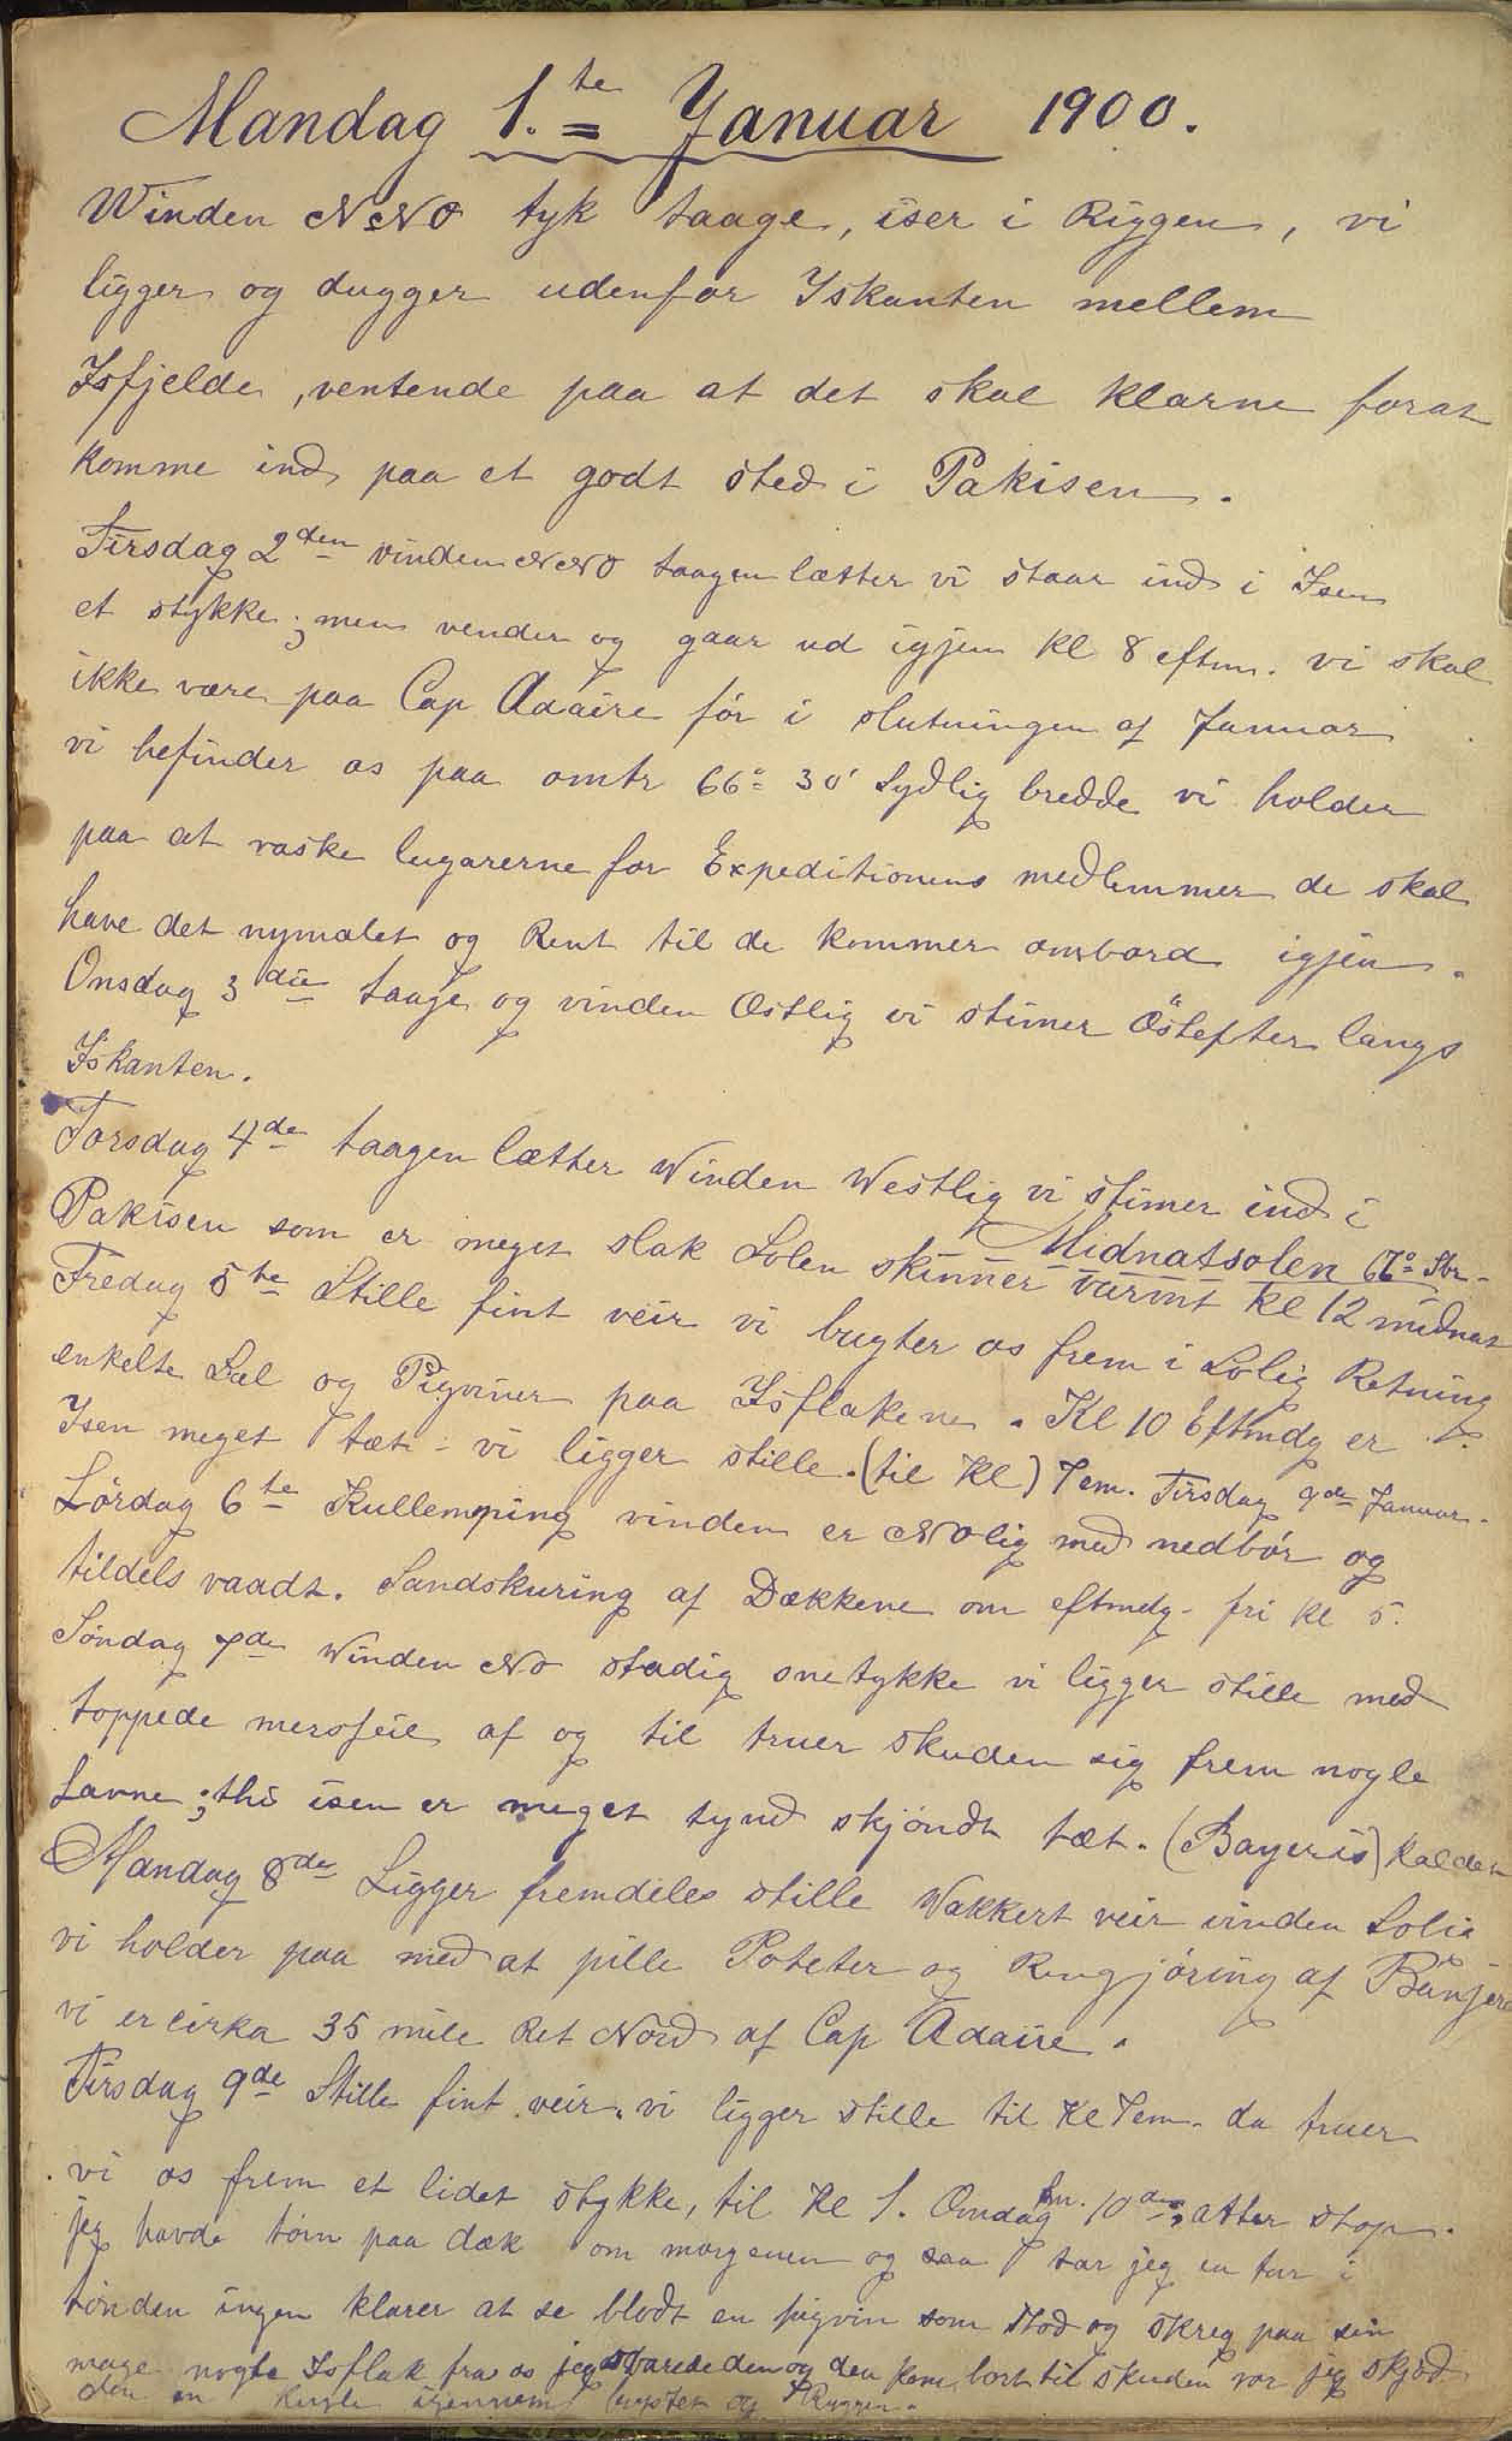 Mandag 1.te Januar 1900.
Winden NNO tyk taage, iser i Riggen, vi
ligger og dugger udenfor Iskanten mellem
Isfjelde, ventende paa at det skal klarne forat
komme ind paa et godt sted i Pakisen.
Tirsdag 2den vinden NNO taagen lætter vi staar ind i Isen
et stykke; men vender og gaar ud igjen kl 8 eftm. vi skal
ikke være paa Cap Adaire før i slutningen af Januar
vi befinder os paa omtr 66° 30' Sydlig bredde vi holder
paa at vaske lugarerne for Expeditionens medlemmer de skal
have det nymalet og Rent til de kommer ombord igjen.
Onsdag 3die taage og vinden Østlig vi stimer Østefter langs
Iskanten.
Torsdag 4de taagen lætter Winden Westlig vi stimer ind i
Pakisen som er meget slak Solen skinner varmt kl 12 midnat
Midnatsolen 67° Sbr.
Fredag 5te Stille fint veir vi bugter os frem i Solig Retning
enkelte Sæl og Pigviner paa Isflakene. Kl 10 Eftmdg er
Isen meget tæt - vi ligger stille. (til Kl) 7 em. Tirsdag 9de Januar.
Lørdag 6te Kullemping vinden er NOlig med nedbør og
tildels vaadt. Sandskuring af Dækkene om eftmdg - fri kl 5.
Søndag 7de Winden NO stadig snetykke vi ligger stille med
toppede mersseil af og til truer skuden sig frem nogle
Favne; thi isen er meget tynd skjøndt tæt. (Bayeris) kaldet
Mandag 8de Ligger fremdeles stille Wakkert veir vinden Solig
vi holder paa med at pille Poteter og Rengjøring af Banjeren
vi er cirka 35 mile Ret Nord af Cap Adaire.
Tirsdag 9de Stille fint veir, vi ligger stille til Kl 7 em. da truer
vi os frem et lidet stykke, til Kl 1. Onsdag fm. 10de; atter stop.
jeg havde tørn paa dæk om morgenen og saa tar jeg en tur i
tønden ingen klarer at se blodt en pigvin som stod og skreg paa sin
mage nogle Isflak fra os jeg svarede den og den kom bort til skuden vor jeg skjød
den en Kugle igennem brystet og Ryggen.